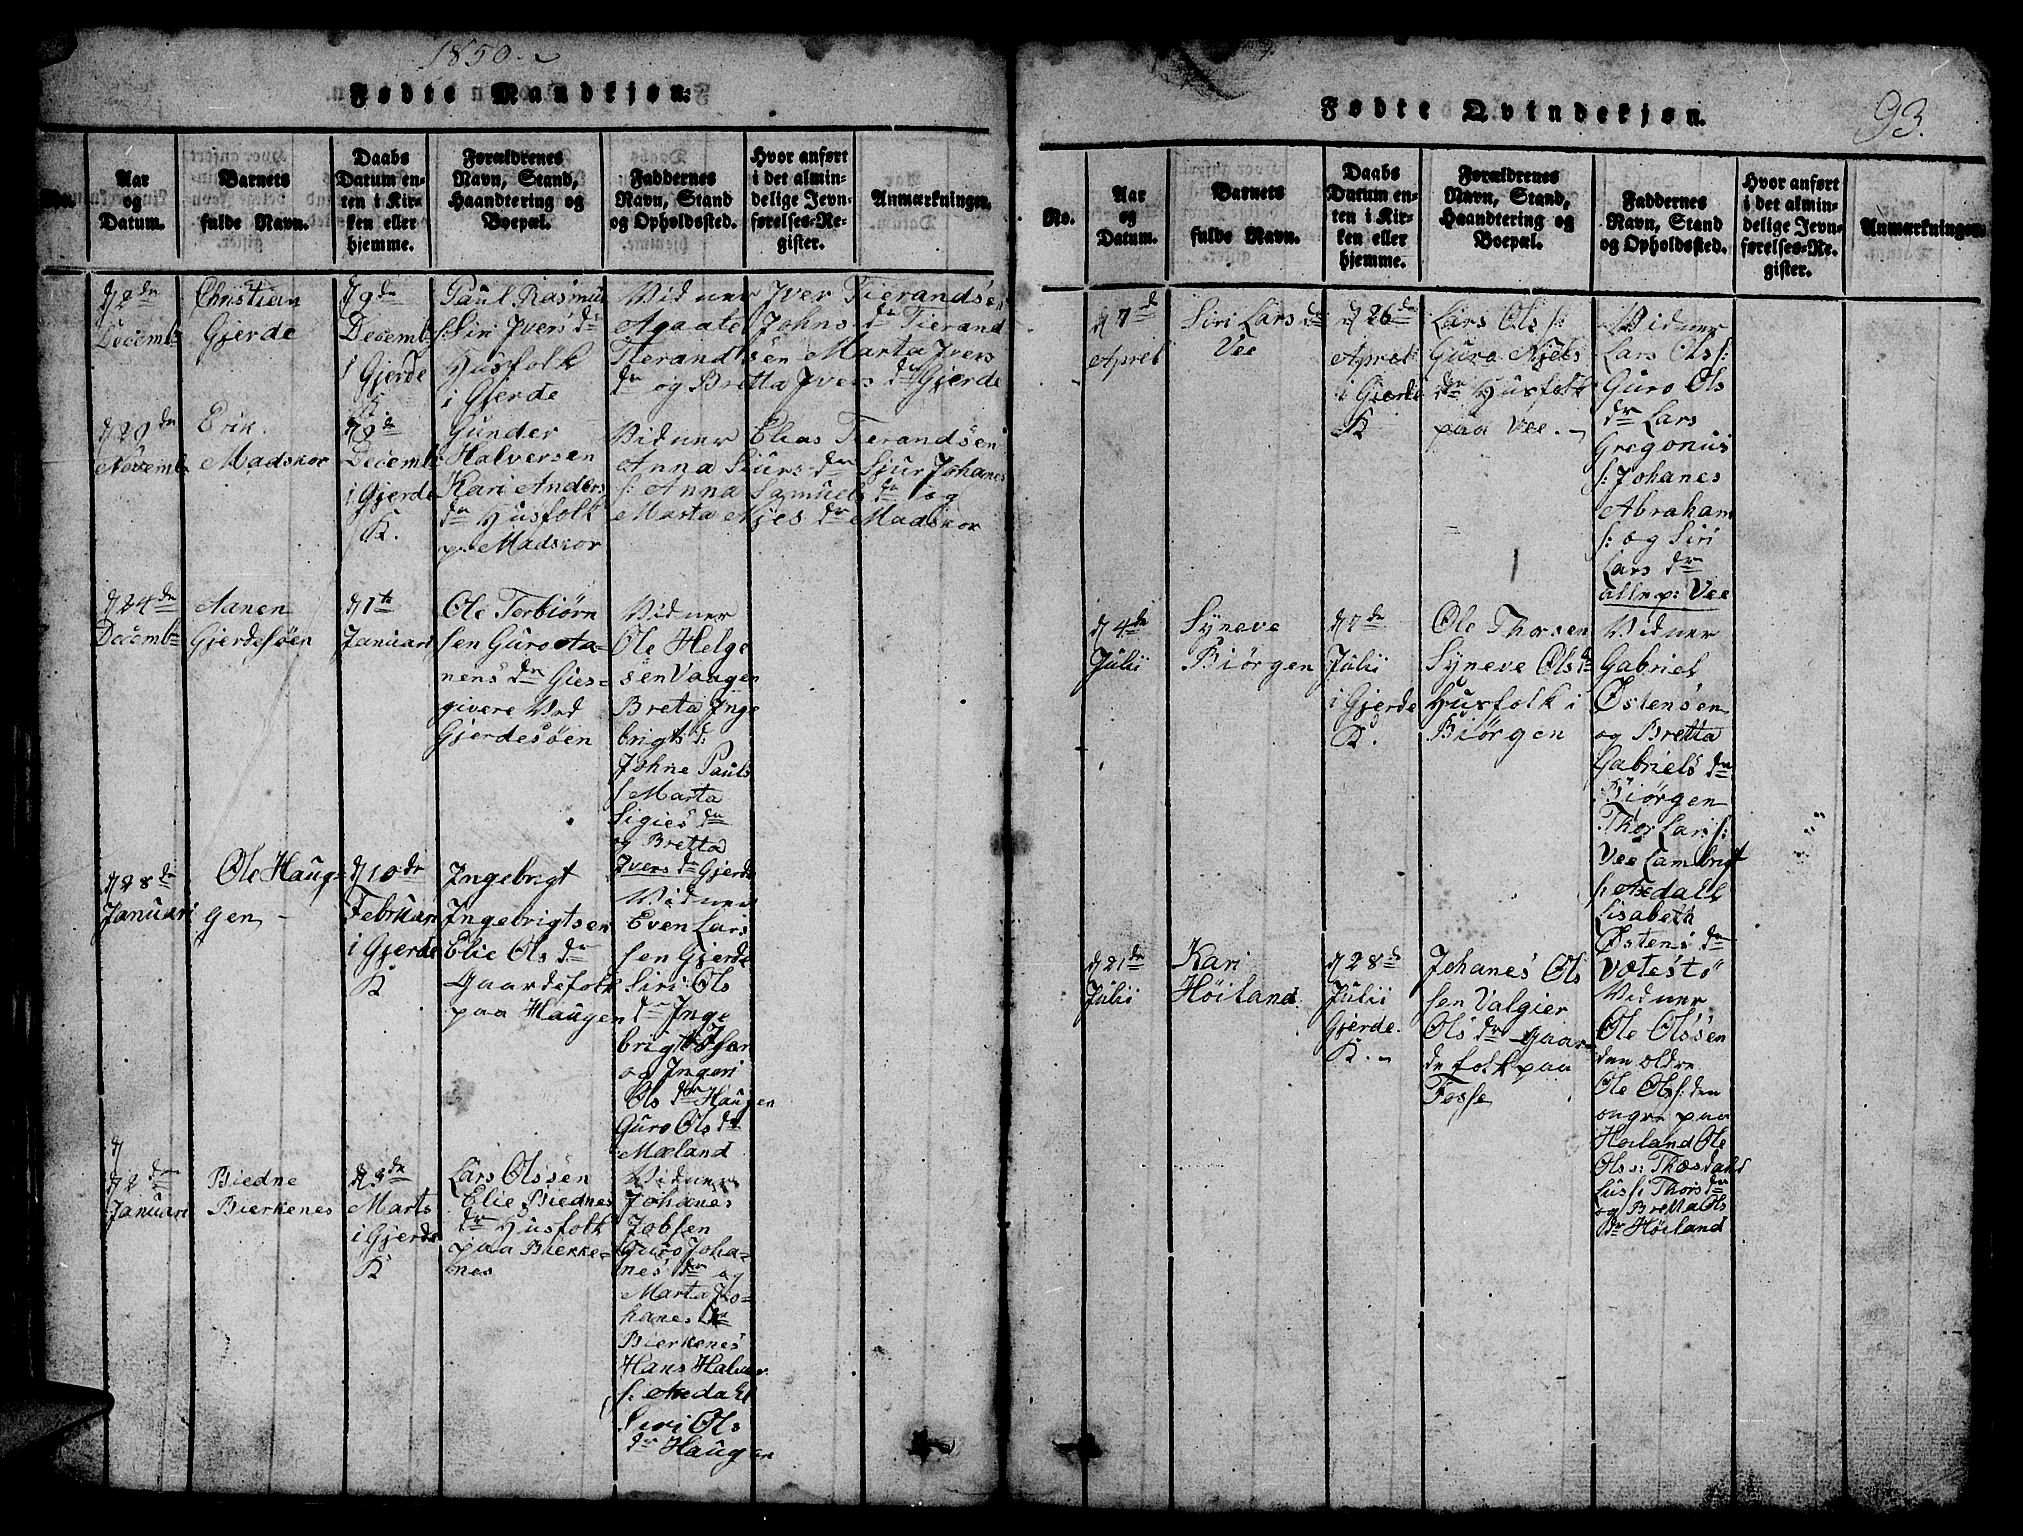 1850.
Fødte Mandkjøn:
No.
Aar
og
Datum.
Barnets
fulde Navn.
Daabs
Datum en-
ten i Kir-
ken eller
hjemme.
Forældrenes
Navn, Stand,
Haandtering og
Boepæl.
Faddernes
Navn, Stand
og Opholdssted.
Hvor anført
i det almin-
delige Jevn-
førelses-Re-
gister.
Anmærkninger.
d 2dn
Decembr
Christian
Gjerde
d 9dn
Decembr
i Gjerde
K
Paul Rasmus
s: Siri Ivers dr
Husfolk
i Gjerde
Vidner Iver Tierandsen
Agaate Johns dr Tierand
Tierandsen Marta Ivers
dr og Bretta Ivers dr Gjerde
d 29dn
Novemb
Erik
Madskor
d 9dn
Decemb
i Gjerde
K.
Gunder
Halversen
Kari Anders
dr Husfolk
p. Madskor
Vidner Elias Tierandsen
Anna Siurs dr Sjur Johanes
s: Anna Samuels dr og
Marta Njes dr Madskor
d 24dn
Decembr
Aanen
Gjerdesøen
d 1te
Januari
Ole Torbiørn
sen Guro Aa-
nens dr Gies-
givere Ved
Gjerdesøen
Vidner
Ole Helge
sen Vaagen
Breta Inge
brigts d:
Johne Pauls
s Marta
Sigies dr
og Bretta
Ivers dr Gjerde
d 28dn
Januari
Ole Haug-
gen
d 10dn
Februari
i Gjerde
K
Ingebrigt
Ingebrigtsen
Elie Ols dr
Gaardefolk
paa Haugen
Vidner
Even Lars
sen Gjerde
Siri Ols
dr Inge
brigt
og Ingeri
Ols dr Haugen
Guro Ols dr
Mæland
d
d 2dn
Januari
Biedne
Bierkenes
d 3dn
Marts
i Gjerde
K
Lars Olssen
Elie Biednes
dr Husfolk
paa Bierke-
nes
Vidner
Johanes
Jobsen
Guro Joha-
nes dr og
Marta Jo-
hanes dr
Bierkenes
Hans Halver
s: Axedahl
Siri Ols
dr Haugen
Fødte Qvindekjøn.
93.
No.
Aar
og
Datum.
Barnets
fulde Navn.
Daabs
Datum en-
ten i Kir-
ken eller
hjemme.
Forældrenes
Navn, Stand,
Haandtering og
Boepæl.
Faddernes
Navn, Stand
og Opholdssted.
Hvor anført
i det almin-
delige Jevn-
førelses-Re-
gister.
Anmærkninger.
d 7d
Aprel
Siri Lars dr
Vee
d 26dn
Aprel
i Gjerde
K
Lars Ols s:
Guro Njels
dr Husfolk
paa Vee.
Vidner
Lars Ols s:
Guro Ols
dr Lars
Gregorius
s: Johanes
Abraham
s: og Siri
Lars dr
alle p: Vee
d 4de
Julii
Syneve
Biørgen
d 7de
Julii
i Gjerde
K.
Ole Thorsen
Syneve Ols dr
Husfolk i
Biørgen
Vidner
Gabriel
Østensen
og Bretta
Gabriels dr
Biørgen
Thor Lars s:
Vee Lambrigt
s: Axdall
Lisabeth
Østens dr
Vætestø
d 21dn
Julii
Kari
Høiland
d 28d
Julii
Gjerde
K.
Johanes Ols
sen Valgier
Ols dr Gaar-
de folk paa
Fosse
Vidner
Ole Olssen
den oldre
Ole Ols s: den
ongre paa
Høiland Ole
Ols s: Thæsdahl
Lussi Thors dr
og Bretta Ols
dr Høiland